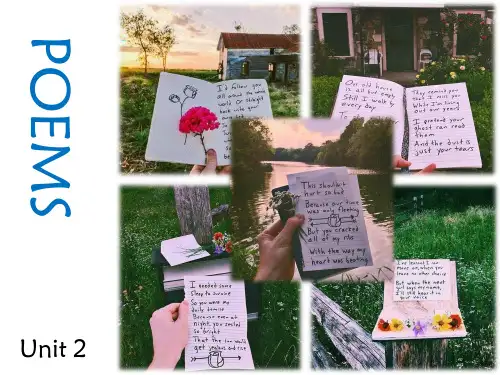 POEMS
Unit 2
I'd follow you
all around the whole
world or straight
back into your
Our old house
is all but empty
Still I walk by
every day
They remind you
that I miss you
While I'm living
out our years
I pretend your
ghost can read
them
And the dust is
just your tears
This shouldn't
hurt so bad
Because our time
was only fleeting
But you cracked
all of my ribs
With the way my
heart was beating
I needed some
sleep to survive
So you were my
daily demise
Because even at
night, you smiled
so bright
That the sun would
get jealous and rise
I've learned I can
move on, when you
leave no other choice
But when the next
girl says my name,
I'll still hear it in
your voice